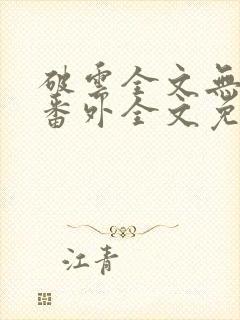 破雲全文無
番外全文免
江青